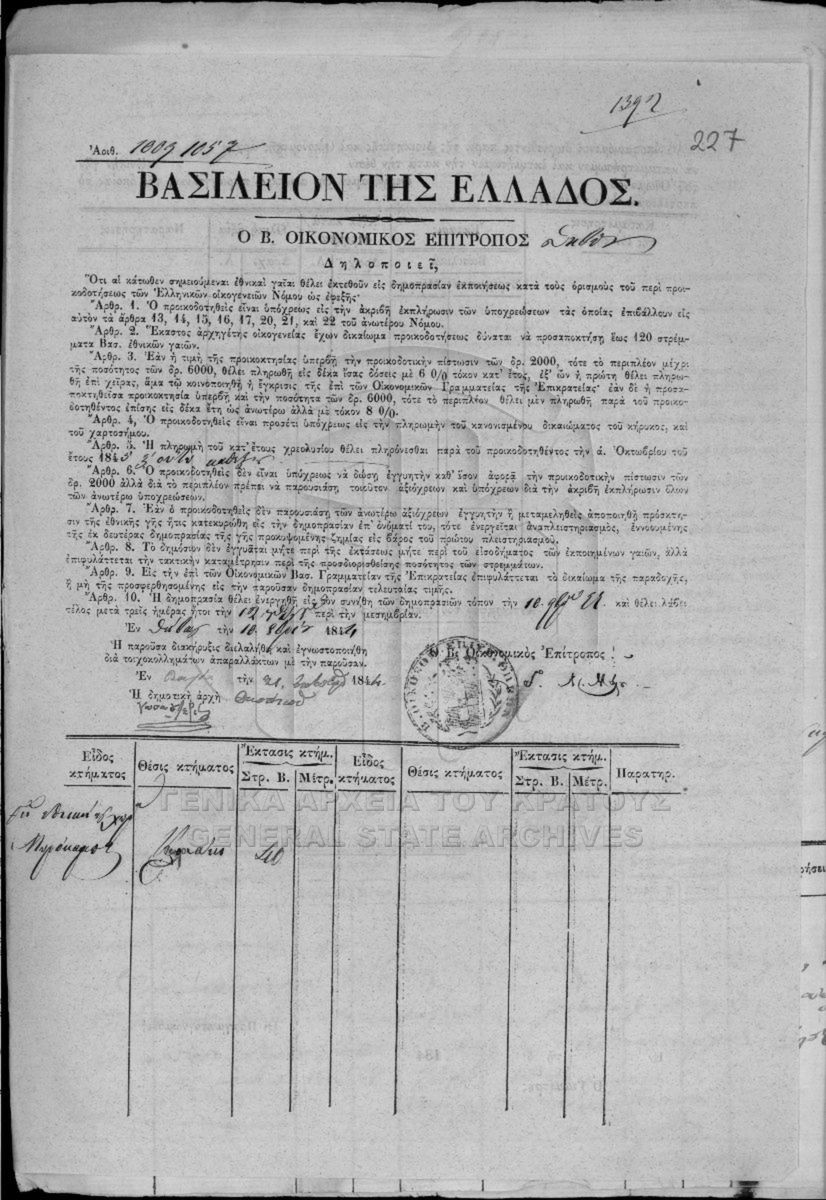 1392
227
Ἀριθ. 1009 1057
ΒΑΣΙΛΕΙΟΝ ΤΗΣ ΕΛΛΑΔΟΣ.
Ο Β. ΟΙΚΟΝΟΜΙΚΟΣ ΕΠΙΤΡΟΠΟΣ
Δηλοποιεῖ,
Ὅτι αἱ κάτωθεν σημειούμεναι ἐθνικαὶ γαῖαι θέλει ἐκτεθοῦν εἰς δημοπρασίαν ἐκποιήσεως κατὰ τοὺς ὁρισμοὺς τοῦ περὶ προι-
κοδοτήσεως τῶν Ἑλληνικῶν οἰκογενειῶν Νόμου ὡς ἐφεξῆς·
Ἄρθρ. 1. Ὁ προικοδοτηθεὶς εἶναι ὑπόχρεως εἰς τὴν ἀκριβῆ ἐκπλήρωσιν τῶν ὑποχρεώσεων τὰς ὁποίας ἐπιβάλλουν εἰς
αὐτὸν τὰ ἄρθρα 13, 14, 15, 16, 17, 20, 21, καὶ 22 τοῦ ἀνωτέρω Νόμου.
Ἄρθρ. 2. Ἕκαστος ἀρχηγέτης οἰκογενείας ἔχων δικαίωμα προικοδοτήσεως δύναται νὰ προσαποκτήσῃ ἕως 120 στρέμ-
ματα Βασ. ἐθνικῶν γαιῶν.
Ἄρθρ. 3. Ἐὰν ἡ τιμὴ τῆς προικοκτησίας ὑπερβῇ τὴν προικοδοτικὴν πίστωσιν τῶν δρ. 2000, τότε τὸ περιπλέον μέχρι
τῆς ποσότητος τῶν δρ. 6000, θέλει πληρωθῆ εἰς δέκα ἴσας δόσεις μὲ 6 0/0 τόκον κατ' ἔτος, ἐξ' ὧν ἡ πρώτη θέλει πληρω-
θῆ ἐπὶ χεῖρας, ἅμα τῷ κοινοποιηθῇ ἡ ἔγκρισις τῆς ἐπὶ τῶν Οἰκονομικῶν Γραμματείας τῆς Ἐπικρατείας· ἐὰν δὲ ἡ προσα-
ποκτηθεῖσα προικοκτησία ὑπερβῇ καὶ τὴν ποσότητα τῶν δρ. 6000, τότε τὸ περιπλέον θέλει μὲν πληρωθῆ παρὰ τοῦ προικο-
δοτηθέντος ἐπίσης εἰς δέκα ἔτη ὡς ἀνωτέρω ἀλλὰ μὲ τόκον 8 0/0.
Ἄρθρ. 4, Ὁ προικοδοτηθεὶς εἶναι προσέτι ὑπόχρεως εἰς τὴν πληρωμὴν τοῦ κανονισμένου δικαιώματος τοῦ κήρυκος, καὶ
τοῦ χαρτοσήμου.
Ἄρθρ. 5. Ἡ πληρωμὴ τοῦ κατ' ἔτους χρεολυσίου θέλει πληρόνεσθαι παρὰ τοῦ προικοδοτηθέντος τὴν ά. Ὀκτωβρίου τοῦ
ἔτους 184
Ἄρθρ. 6. Ὁ προικοδοτηθεὶς δὲν εἶναι ὑπόχρεως νὰ δώσῃ ἐγγυητὴν καθ' ὅσον ἀφορᾷ τὴν προικοδοτικὴν πίστωσιν τῶν
δρ. 2000 ἀλλὰ διὰ τὸ περιπλέον πρέπει νὰ παρουσιάσῃ τοιοῦτον ἀξιόχρεων καὶ ὑπόχρεων διὰ τὴν ἀκριβῆ ἐκπλήρωσιν ὅλων
τῶν ἀνωτέρω ὑποχρεώσεων.
Ἄρθρ. 7. Ἐὰν ὁ προικοδοτηθεὶς δὲν παρουσιάσῃ τῶν ἀνωτέρω ἀξιόχρεων ἐγγυητὴν ἢ μεταμεληθεὶς ἀποποιηθῇ πρόσκτη-
σιν τῆς ἐθνικῆς γῆς ἥτις κατεκυρώθη εἰς τὴν δημοπρασίαν ἐπ' ὀνόματί του, τότε ἐνεργεῖται ἀναπλειστηριασμὸς, ἐννοουμένης
τῆς ἐκ δευτέρας δημοπρασίας τῆς γῆς προκυψομένης ζημίας εἰς βάρος τοῦ πρώτου πλειστηριασμοῦ.
Ἄρθρ. 8. Τὸ δημόσιον δὲν ἐγγυᾶται μήτε περὶ τῆς ἐκτάσεως μήτε περὶ τοῦ εἰσοδήματος τῶν ἐκποιημένων γαιῶν, ἀλλὰ
ἐπιφυλάττεται τὴν τακτικὴν καταμέτρησιν περὶ τῆς προσδιορισθείσης ποσότητος τῶν στρεμμάτων.
Ἄρθρ. 9. Εἰς τὴν ἐπὶ τῶν Οἰκονομικῶν Βασ. Γραμματείαν τῆς Ἐπικρατείας ἐπιφυλάττεται τὸ δικαίωμα τῆς παραδοχῆς,
ἢ μὴ τῆς προσφερθησομένης εἰς τὴν παροῦσαν δημοπρασίαν τελευταίας τιμῆς.
Ἄρθρ. 10. Ἡ δημοπρασία θέλει ἐνεργηθῆ εἰς τὸν συνήθη τῶν δημοπρασιῶν τόπον τὴν 10 καὶ θέλει λάβει
τέλος μετὰ τρεῖς ἡμέρας ἤτοι τὴν 12 περὶ τὴν μεσημβρίαν.
Ἐν τὴν 10 184
Ἡ παροῦσα διακήρυξις διελαλήθη καὶ ἐγνωστοποιήθη
διὰ τοιχοκολλημάτων ἀπαραλλάκτων μὲ τὴν παροῦσαν.
Ὁ Β. Οἰκονομικὸς Ἐπίτροπος
Ἐν τὴν 21 184
Ἡ δημοτικὴ ἀρχὴ
Εἶδος κτήματος Θέσις κτήματος Ἔκτασις κτήμ. Εἶδος κτήματος Θέσις κτήματος Ἔκτασις κτήμ. Παρατηρ.
Στρ. Β. Μέτρ. Στρ. Β. Μέτρ.
ΓΕΝΙΚΑ ΑΡΧΕΙΑ ΤΟΥ ΚΡΑΤΟΥΣ
GENERAL STATE ARCHIVES